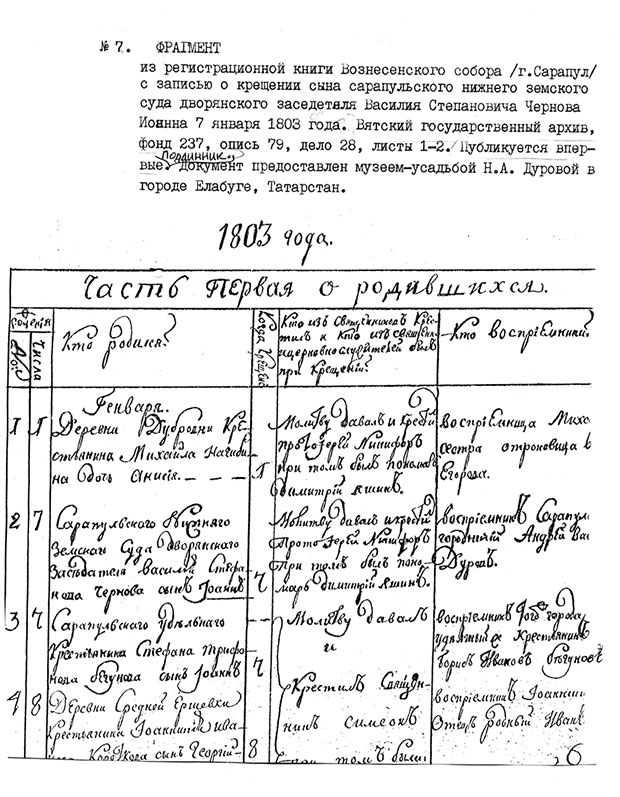 № 7. ФРАГМЕНТ
из регистрационной книги Вознесенского собора /г.Сарапул/
с записью о крещении сына сарапульского нижнего земского
суда дворянского заседетяля Василия Степановича Чернова
Иоанна 7 января 1803 года. Вятский государственный архив,
фонд 237, опись 79, дело 28, листы 1-2. Публикуется впер-
подлинник
вые. Документ предоставлен музеем-усадьбой Н.А. Дуровой в
городе Елабуге, Татарстан.
1803 года.
Часть первая о родившихся.
Числа
Кто родился.
Когда
Кто изъ Священниковъ Кре-
стилъ и Кто изъ
былъ
при Крещении
Кто восприемники
Генваря.
1 1 Деревни Дубровни Кре-
стьянина Михайла
на дочь Анисия.
1
Молитву давалъ и
протоерей Никифоръ
при томъ былъ пономарь
Димитрий Яшинъ.
восприемница
сестра
Егорова.
2 7 Сарапульского Нижняго
Земскаго Суда Дворянскаго
Заседателя Василия Стефа-
нова Чернова сынъ Иоаннъ
7
Молитву давалъ и крестилъ
протоерей Никифоръ
При томъ былъ поно-
марь Димитрий Яшинъ.
восприемникъ Сарапул
городничий Андрей Ва
Дуровъ.
3 7 Сарапульского удельнаго
Крестьянина Стефана Трифо-
нова Бегунова сынъ Иоаннъ
7
Молитву давалъ
и
Крестилъ Священ-
никъ Симеонъ
при томъ были
восприемникъ города
удельный Крестьянинъ
Борисъ Ивановъ Бегуновъ
4 8 Деревни Средней Ершовки
Крестьянина
сынъ Георгий
8
восприемникъ
6